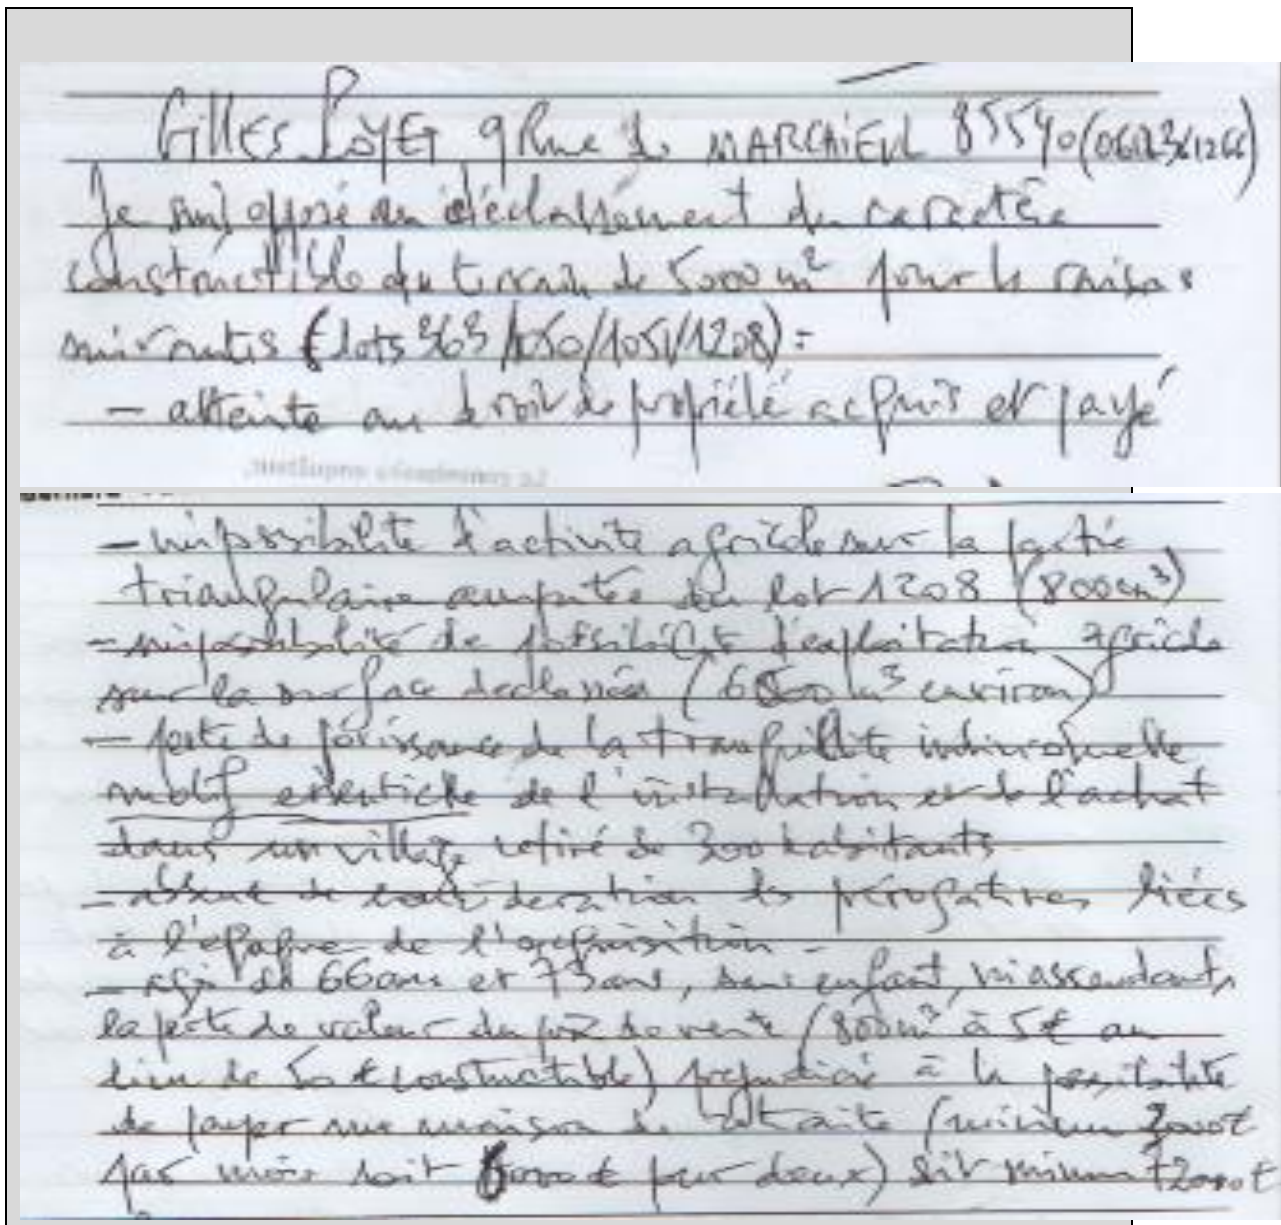 GILLES POYET 9 Rue de MARCAIEUL 85540
Je suis opposé au déclassement du caractère
constructible du terrain de 5000 m² pour les raisons
suivantes (lots 363/1050/1051/1208) :
- atteinte au droit de propriété acquis et payé
Le commissaire enquêteur,
- impossibilité d'activité agricole sur la partie
triangulaire amputée du lot 1208 (800 m³)
- impossibilité de possibilité d'exploitation agricole
sur la surface déclassée (m³ environ)
- perte de jouissance de la tranquillité individuelle
motif essentielle de l'installation et de l'achat
dans un village retiré de 300 habitants
- absence de considération des prérogatives liées
à l'épargne de l'acquisition -
- agés de 66 ans et 73 ans, sans enfant, ni ascendant,
la perte de valeur du prix de vente (800 m³ à 5€ au
lieu de 50 € constructible) préjudicie à la possibilité
de payer une maison de retraite (minimum 3000€
par mois soit 6000 € pour deux) soit minimum